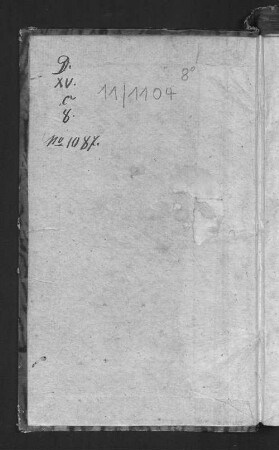 D.
XV.
c
8.
No 1087.
8°
11/1104